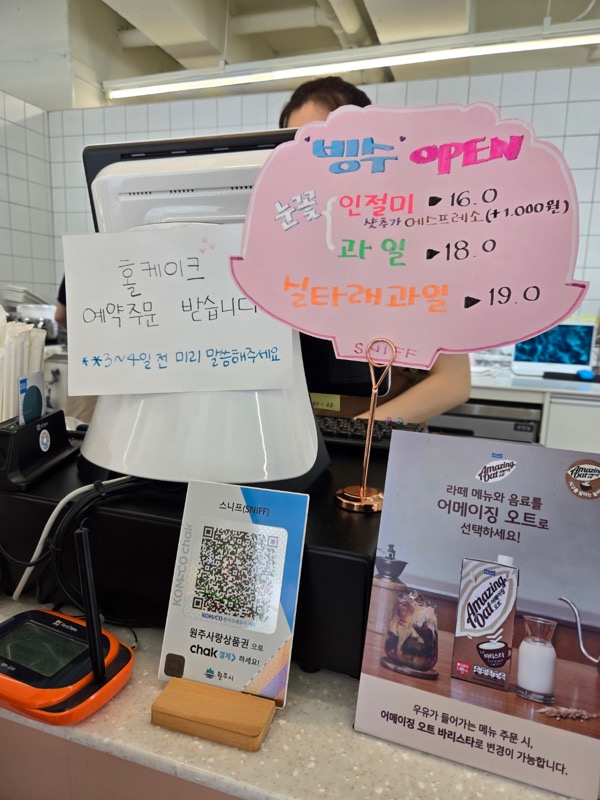 '빙수' OPEN
눈꽃
인절미 ▶16.0
샷추가 에스프레소(+1.000원)
과일 ▶18.0
실타래과일 ▶19.0
SNIFF
홀케이크
예약주문 받습니다
**3~4일 전 미리 말씀해주세요
스니프(SNIFF)
KOMSCO chak
KOMSCO
원주사랑상품권 으로
chak 결제》 하세요!
원주시
Amazing Oat
라떼 메뉴와 음료를
어메이징 오트로
선택하세요!
Amazing Oat
어메이징 오트
바리스타
우유가 들어가는 메뉴 주문 시,
어메이징 오트 바리스타로 변경이 가능합니다.